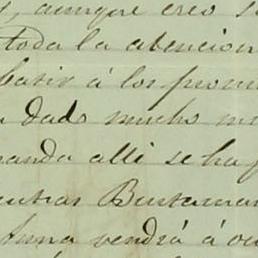 , aunque creo s
toda la atencion
batir á los pronu
dado mucho m
manda alli se ha p
entras Bustaman
Anna vendrá á ou